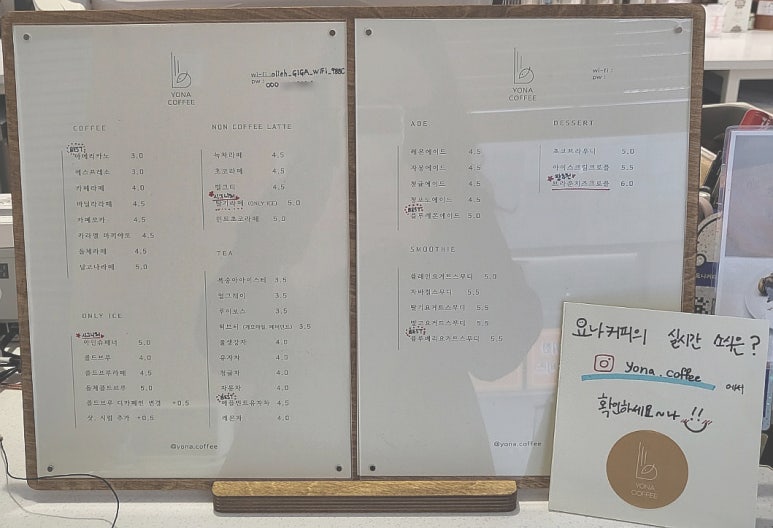 YONA
COFFEE
wi-fi: olleh_GIGA_WiFi_9BBC
pw:
000
COFFEE
BEST
아메리카노 3.0
에스프레소 3.0
카페라떼 4.0
바닐라라떼 4.5
카페모카 4.5
카라멜 마끼아또 4.5
돌체라떼 4.5
달고나라떼 5.0
ONLY ICE
시그니처
아인슈페너 5.0
콜드브루 4.0
콜드브루라떼 4.5
돌체콜드브루 5.0
콜드브루 디카페인 변경 +0.5
샷, 시럽 추가 +0.5
NON COFFEE LATTE
녹차라떼 4.5
초코라떼 4.5
밀크티 4.5
딸기라떼 (ONLY ICE) 5.0
민트초코라떼 5.0
TEA
복숭아아이스티 3.5
얼그레이 3.5
루이보스 3.5
허브티 (캐모마일 페퍼민트) 3.5
율생강차 4.0
유자차 4.0
청귤차 4.0
자몽차 4.0
BEST
애플민트유자차 4.5
레몬차 4.0
@yona.coffee
YONA
COFFEE
wi-fi :
pw :
ADE
레몬에이드 4.5
자몽에이드 4.5
청귤에이드 4.5
청포도에이드 4.5
BEST
블루레몬에이드 5.0
SMOOTHIE
플레인요거트스무디 5.0
자바칩스무디 5.5
딸기요거트스무디 5.5
망고요거트스무디 5.5
BEST
블루베리요거트스무디 5.5
DESSERT
초코브라우니 5.0
아이스크림크로플 5.5
브라운치즈크로플 6.0
@yona.coffee
요나커피의 실시간 소식은?
yona.coffee 에서
확인하세요~나 !!
YONA
COFFEE